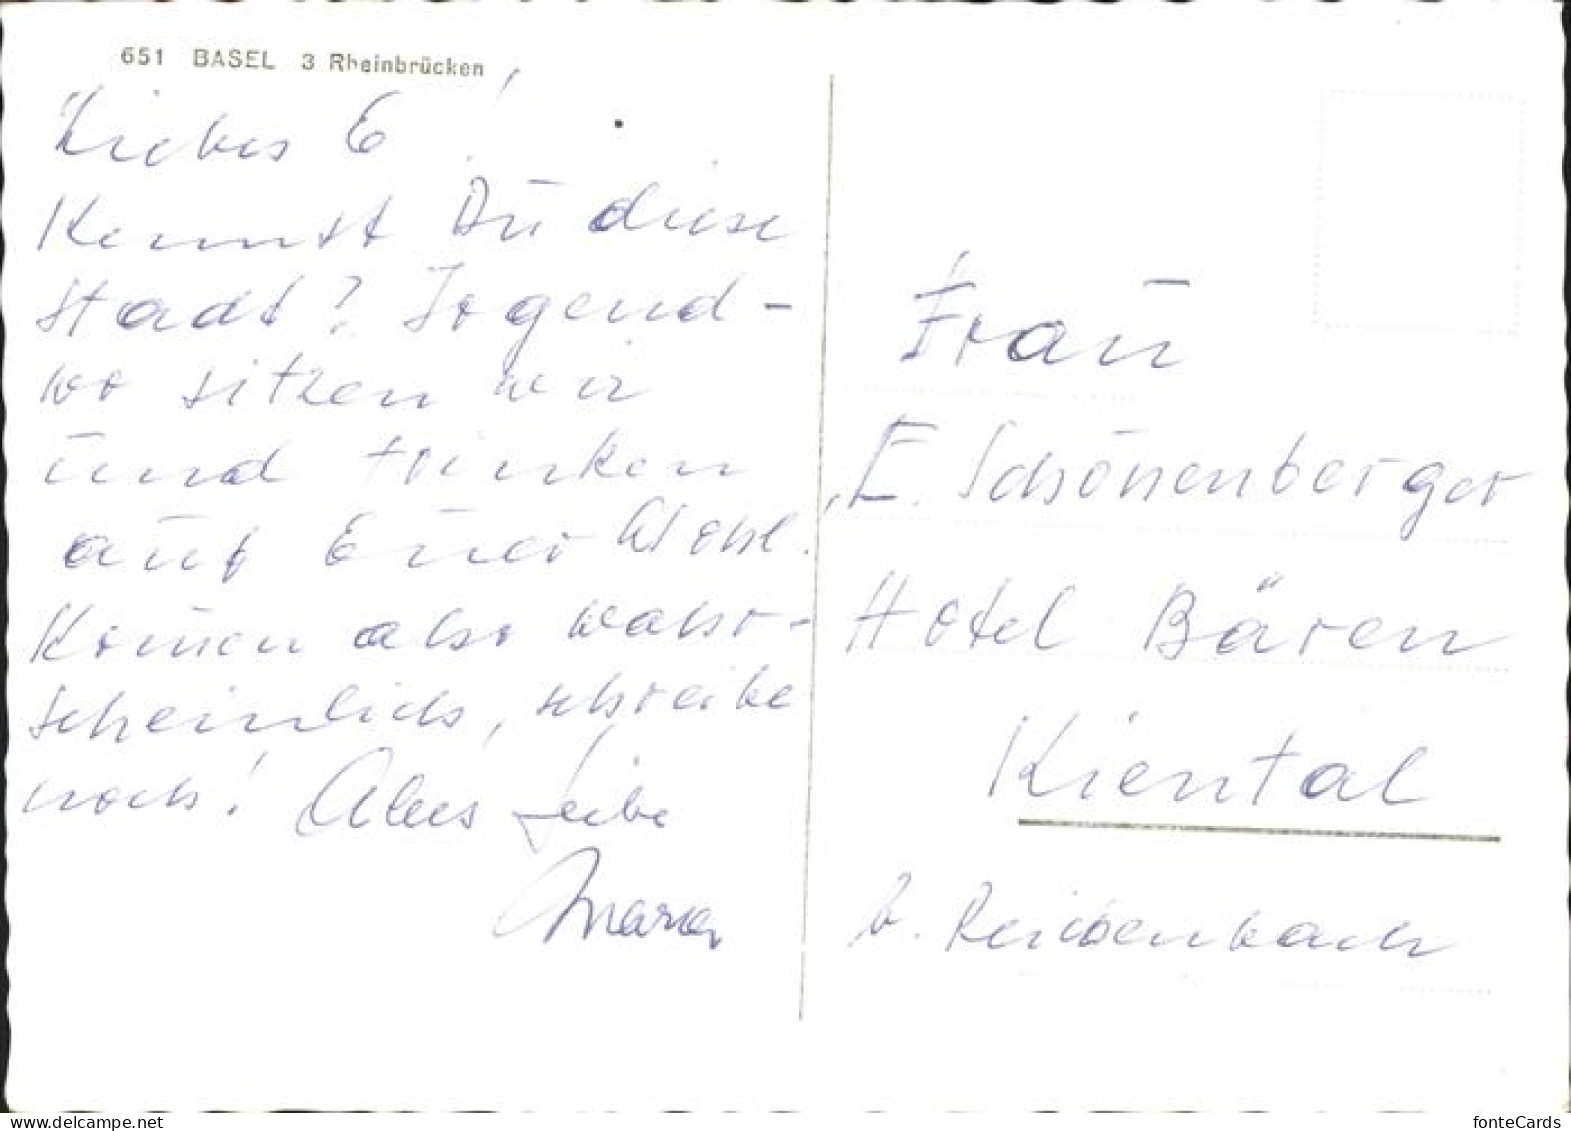 651 BASEL 3 Rheinbrücken
Liebes E!
Kennst Du diese
Stadt? Irgend-
wo sitzen wir
und trinken
auf Euer Wohl.
Kommen also wahr-
scheinlich, schreibe
noch! Alles Liebe
Frau
E. Schönenberger
Hotel Bären
Kiental
b. Reichenbach
fonteCards
www.delcampe.net